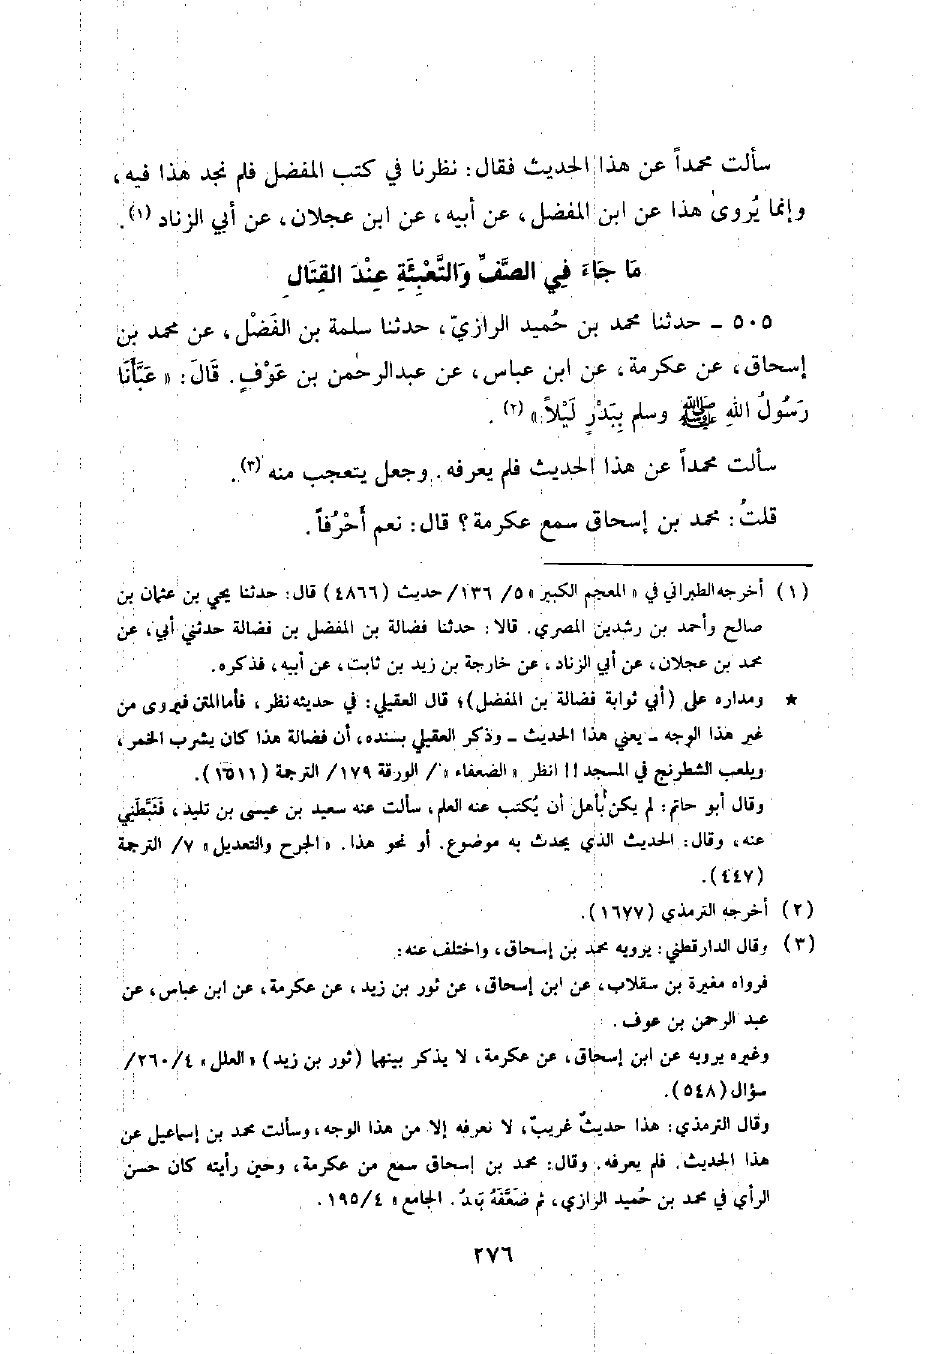 سألت محمداً عن هذا الحديث فقال: نظرنا في كتب المفضل فلم نجد هذا فيه،
وإنما يُروىٰ هذا عن ابن المفضل، عن أبيه، عن ابن عجلان، عن أبي الزناد (١).
مَا جَاءَ فِي الصَّفِّ وَالتَّعْبِئَةِ عِنْدَ القِتَالِ
٥٠٥ ـ حدثنا محمد بن حُميد الرازيّ، حدثنا سلمة بن الفَضْل، عن محمد بن
إسحاق، عن عكرمة، عن ابن عباس، عن عبدالرحمٰن بن عَوْفٍ. قَالَ: «عَبَّأَنَا
رَسُولُ اللهِ ﷺ وسلم بِبَدْرٍ لَيْلاً» (٢).
سألت محمداً عن هذا الحديث فلم يعرفه. وجعل يتعجب منه (٣).
قلتُ: محمد بن إسحاق سمع عكرمة؟ قال: نعم أَحْرُفاً.
(١) أخرجه الطبراني في «المعجم الكبير» ٥/ ١٣٦/ حديث (٤٨٦٦) قال: حدثنا يحيي بن عثمان بن
صالح وأحمد بن رشدين المصري. قالا: حدثنا فضالة بن المفضل بن فضالة حدثني أبي، عن
محمد بن عجلان، عن أبي الزناد، عن خارجة بن زيد بن ثابت، عن أبيه، فذكره.
★ ومداره على (أبي ثوابة فضالة بن المفضل)؛ قال العقيلي: في حديثه نظر، فأما المتن فيروى من
غير هذا الوجه ـ يعني هذا الحديث ـ وذكر العقيلي بسنده، أن فضالة هذا كان يشرب الخمر،
ويلعب الشطرنج في المسجد!! انظر «الضعفاء»/ الورقة ١٧٩/ الترجمة (١٥١١).
وقال أبو حاتم: لم يكن بأهل أن يُكتب عنه العلم، سألت عنه سعيد بن عيسى بن تليد، فَثَبَّطَنِي
عنه، وقال: الحديث الذي يحدث به موضوع. أو نحو هذا. «الجرح والتعديل» ٧/ الترجمة
(٤٤٧).
(٢) أخرجه الترمذي (١٦٧٧).
(٣) وقال الدارقطني: يرويه محمد بن إسحاق، واختلف عنه:
فرواه مغيرة بن سقلاب، عن ابن إسحاق، عن ثور بن زيد، عن عكرمة، عن ابن عباس، عن
عبد الرحمن بن عوف.
وغيره يرويه عن ابن إسحاق، عن عكرمة، لا يذكر بينهما (ثور بن زيد) «العلل» ٤/٢٦٠/
سؤال (٥٤٨).
وقال الترمذي: هذا حديثٌ غريبٌ، لا نعرفه إلا من هذا الوجه، وسألت محمد بن إسماعيل عن
هذا الحديث. فلم يعرفه. وقال: محمد بن إسحاق سمع من عكرمة، وحين رأيته كان حسن
الرأي في محمد بن حُميد الرازي، ثم ضَعَّفَهُ بَعدُ. الجامع» ٤/١٩٥.
٢٧٦